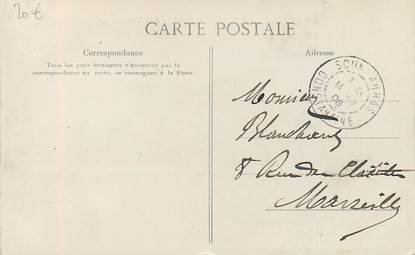 20 €
CARTE POSTALE
Correspondance
Tous les pays étrangers n'acceptent pas la
correspondance au recto, se renseigner à la Poste
Adresse
SOUK-AHRAS
CONSTANTINE
08
Monsieur
Blanchard
8 Rue de
Marseille